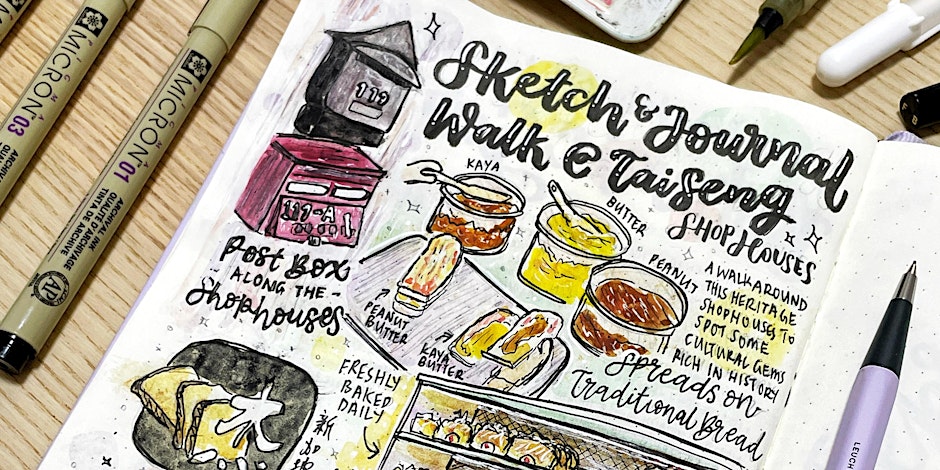 Sketch & Journal
Walk @ Taiseng
SHOPHOUSES
A WALK AROUND
THIS HERITAGE
SHOPHOUSES TO
SPOT SOME
CULTURAL GEMS
RICH IN HISTORY
119
111-A
Post Box
ALONG THE -
Shophouses
KAYA
BUTTER
PEANUT
PEANUT
BUTTER
KAYA
BUTTER
Spreads on
Traditional Bread
FRESHLY
BAKED
DAILY
新
加
坡
PIGMA
MICRON
03
ARCHIVAL INK
PIGMA
MICRON
01
ARCHIVAL INK
QUALITÉ D'ARCHIVAGE
TINTA DE ARCHIVE
AP
LEUC